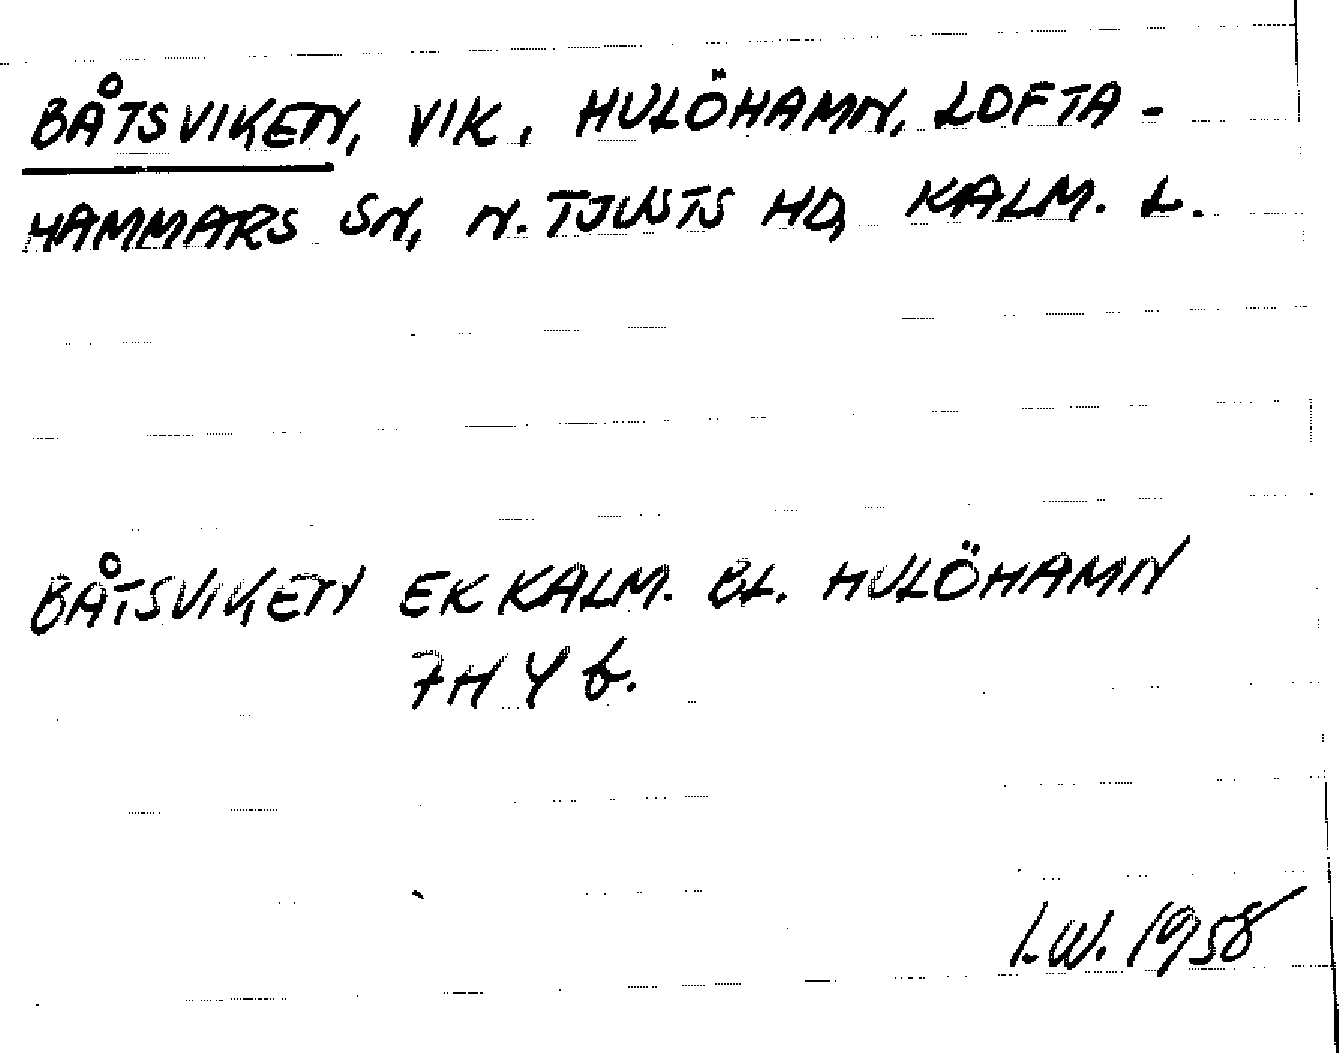 BÅTSVIKEN, VIK, HULÖHAMN, LOFTA-
HAMMARS SN, N. TJUSTS HD, KALM. L.
BÅTSVIKEN EK KALM. BL. HULÖHAMN
7H Y b.
I.W. 1958